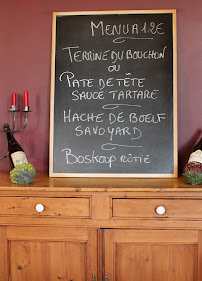 MENU A 12€
TERRINE DU BOUCHON
OU
PATE DE TÊTE
SAUCE TARTARE
HACHE DE BŒUF
SAVOYARD
BOSKOOP RÔTIE